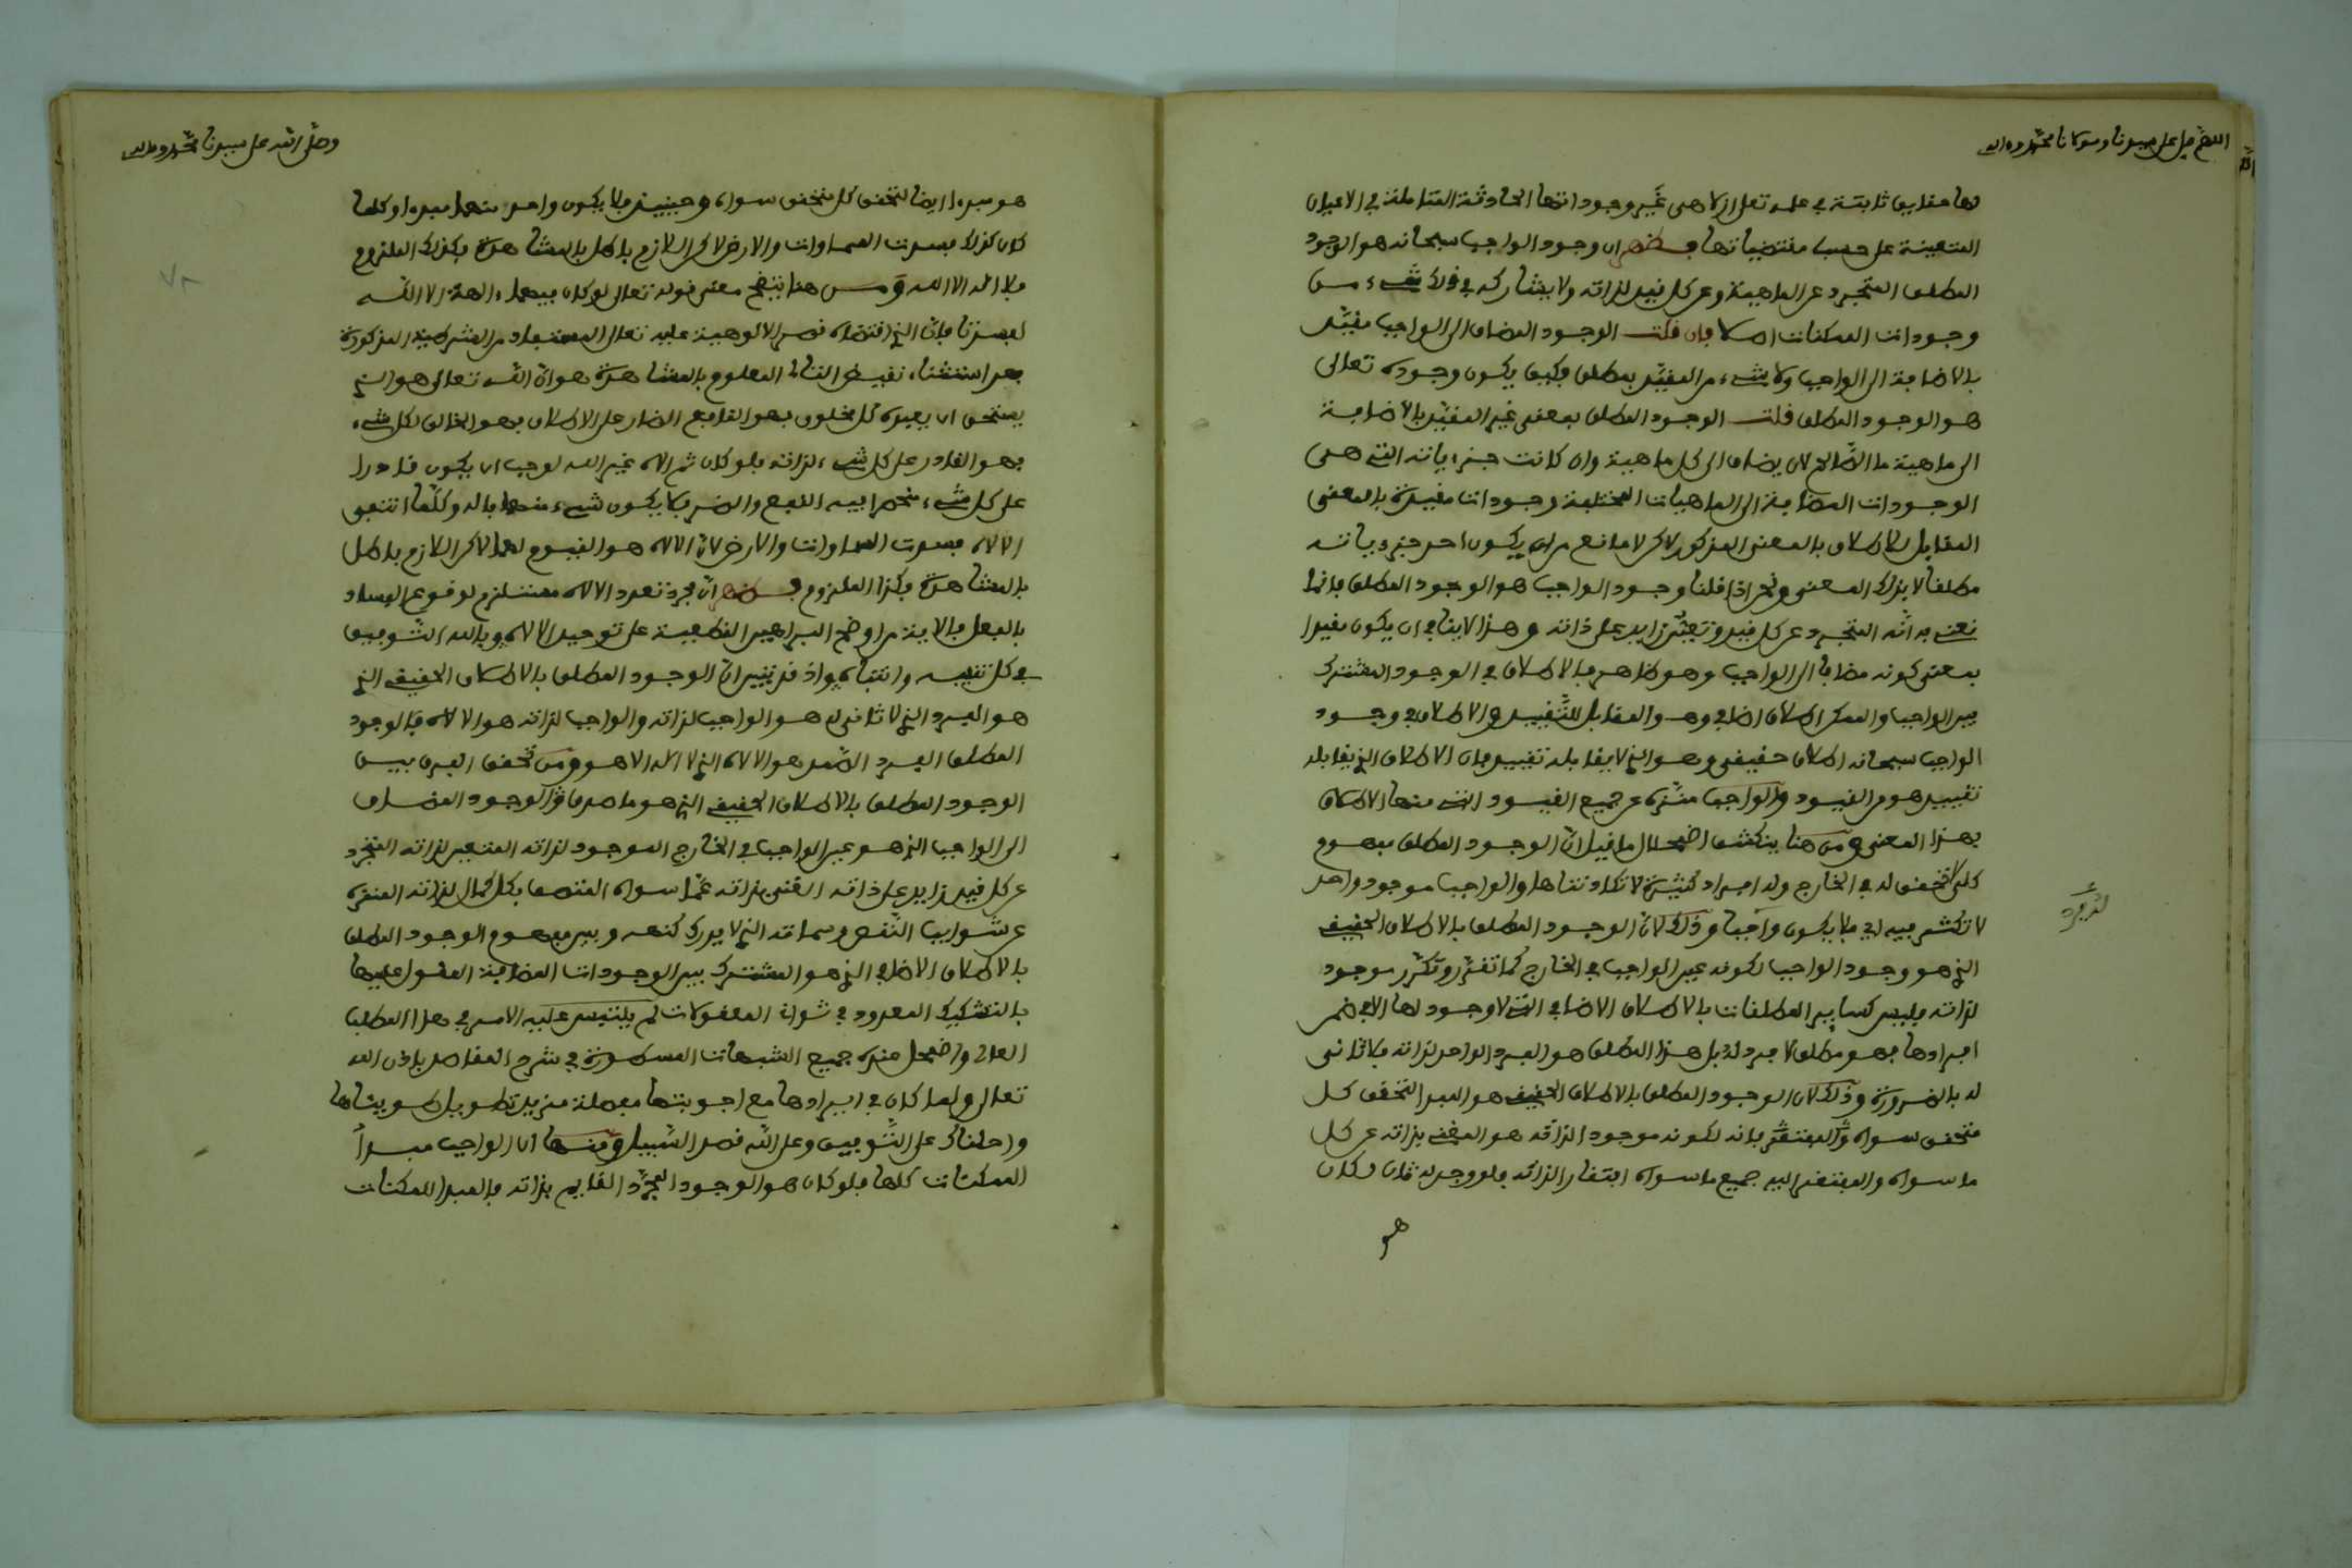 اللهم صل على سيدنا ومولانا محمد وءاله
لها حقايق ثابتة في علمه تعلى ازلا هي غير وجوداتها الحادثة الفايضة في الاعيان
المتعينة على حسب مقتضياتها فظهر ان وجود الواجب سبحانه هو الوجود
المطلق المتجرد عن الماهية وعن كل قيد لذاته ولا يشاركه في ذلك شيء من
وجودات الممكنات اصلا فان قلت الوجود المضاف الى الواجب مقيد
بالاضافة الى الواجب ولا شيء من المقيد بمطلق فكيف يكون وجوده تعالى
هو الوجود المطلق قلت الوجود المطلق بمعنى غير المقيد بالاضافة
الى ماهية ما الصالح لان يضاف الى كل ماهية وان كانت جزءياته التي هي
الوجودات المضافة الى الماهيات المختلفة وجودات مقيدة بالمعنى
المقابل للاطلاق بالمعنى المذكور لاكن لا مانع من ان يكون احد جزءياته
مطلقا لا بذلك المعنى ونحن اذا قلنا وجود الواجب هو الوجود المطلق فانما
نعني به انه المتجرد عن كل قيد وتعين زايد على ذاته وهذا لا ينافي ان يكون مقيدا
بمعنى كونه مضافا الى الواجب وهو ظاهر فالاطلاق في الوجود المشترك
بين الواجب والممكن اطلاق اضافي وهو المقابل للتقييد والاطلاق في وجود
الواجب سبحانه اطلاق حقيقي وهو الذي لا يقابله تقييد فان الاطلاق الذي يقابله
تقييد هو من القيود والواجب منزه عن جميع القيود التي منها الاطلاق
بهذا المعنى ومن هنا ينكشف اضمحلال ما قيل ان الوجود المطلق مفهوم
كلي لا تحقق له في الخارج وله افراد كثيرة لا تكاد تتناها والواجب موجود واحد
لا تكثر فيه اي فلا يكون واجبا وذلك لان الوجود المطلق بالاطلاق الحقيقي
الذي هو وجود الواجب لكونه عين الواجب في الخارج كما تقرر وتكرر موجود
لذاته فليس كساير المطلقات بالاطلاق الاضافي التي لا وجود لها الا في ضمن
افرادها فهو مطلق لا فرد له بل هذا المطلق هو الفرد الواحد لذاته فلا ثاني
له بالضرورة وذلك لان الوجود المطلق بالاطلاق الحقيقي هو المبدا لتحقق كل
متحقق سواه والمفتقر بانه لكونه موجودا لذاته هو الغني بذاته عن كل
ما سواه والمفتقر اليه جميع ما سواه افتقارا لذاته فلو وجد له ثان لكان
هو
وصلى الله على سيدنا محمد وءاله
هو مبدءا ايضا لتحقق كل متحقق سواه وحينيذ فلا يكون واحد منهما مبدءا وكلما
كان كذلك فسدت السماوات والارض لاكن اللازم باطل بالمشاهدة فكذلك الملزوم
فلا اله الا الله ومن هنا يتضح معنى قوله تعالى لو كان فيهما ءالهة الا الله
لفسدتا فان الذي اقتضاه قصر الالوهية عليه تعالى المستفاد من الشرطية المذكورة
بعد استثناء نقيض التالي المعلوم بالمشاهدة هو ان الله تعالى هو الذي
يستحق ان يعبده كل مخلوق فهو النافع الضار على الاطلاق فهو الخالق لكل شيء
فهو القادر على كل شيء لذاته فلو كان ثم اله غير الله لوجب ان يكون قادرا
على كل شيء منحصرا فيه النفع والضر فلا يكون شيء منهما باله وكلما انتفى
الاله فسدت السماوات والارض لان الاله هو القيوم لهما لاكن اللازم باطل
بالمشاهدة فكذا الملزوم فظهر ان مجرد تعدد الاله مستلزم لوقوع الفساد
بالفعل فالاية من اوضح البراهين القطعية على توحيد الاله وبالله التوفيق
في كل تنبيه وانتباه واذ قد تبين ان الوجود المطلق بالاطلاق الحقيقي الذي
هو الفرد الذي لا ثاني له هو الواجب لذاته والواجب لذاته هو الاله فالوجود
المطلق الفرد الصمد هو الاله الذي لا اله الا هو ومن تحقق الفرق بين
الوجود المطلق بالاطلاق الحقيقي الذي هو ما صدق الوجود المضاف
الى الواجب الذي هو عين الواجب في الخارج الموجود لذاته المتعين لذاته المتجرد
عن كل قيد زايد على ذاته الغني بذاته عما سواه المتصف بكل كمال لذاته المنزه
عن شوايب النقص وسماته الذي لا يدرك كنهه وبين مفهوم الوجود المطلق
بالاطلاق الاضافي الذي هو المشترك بين الوجودات المضافة المقول عليها
بالتشكيك المعدود في ثواني المعقولات لم يلتبس عليه الامر في هذا المطلب
العالي واضمحل عنده جميع الشبهات المسطورة في شرح المقاصد باذن الله
تعالى ولما كان في ايرادها مع اجوبتها مفصلة مزيد تطويل طويناها
واحلناك على التوفيق وعلى الله قصد السبيل ومنها ان الواجب مبدأ
الممكنات كلها فلو كان هو الوجود المجرد القايم بذاته فالمبدا للممكنات